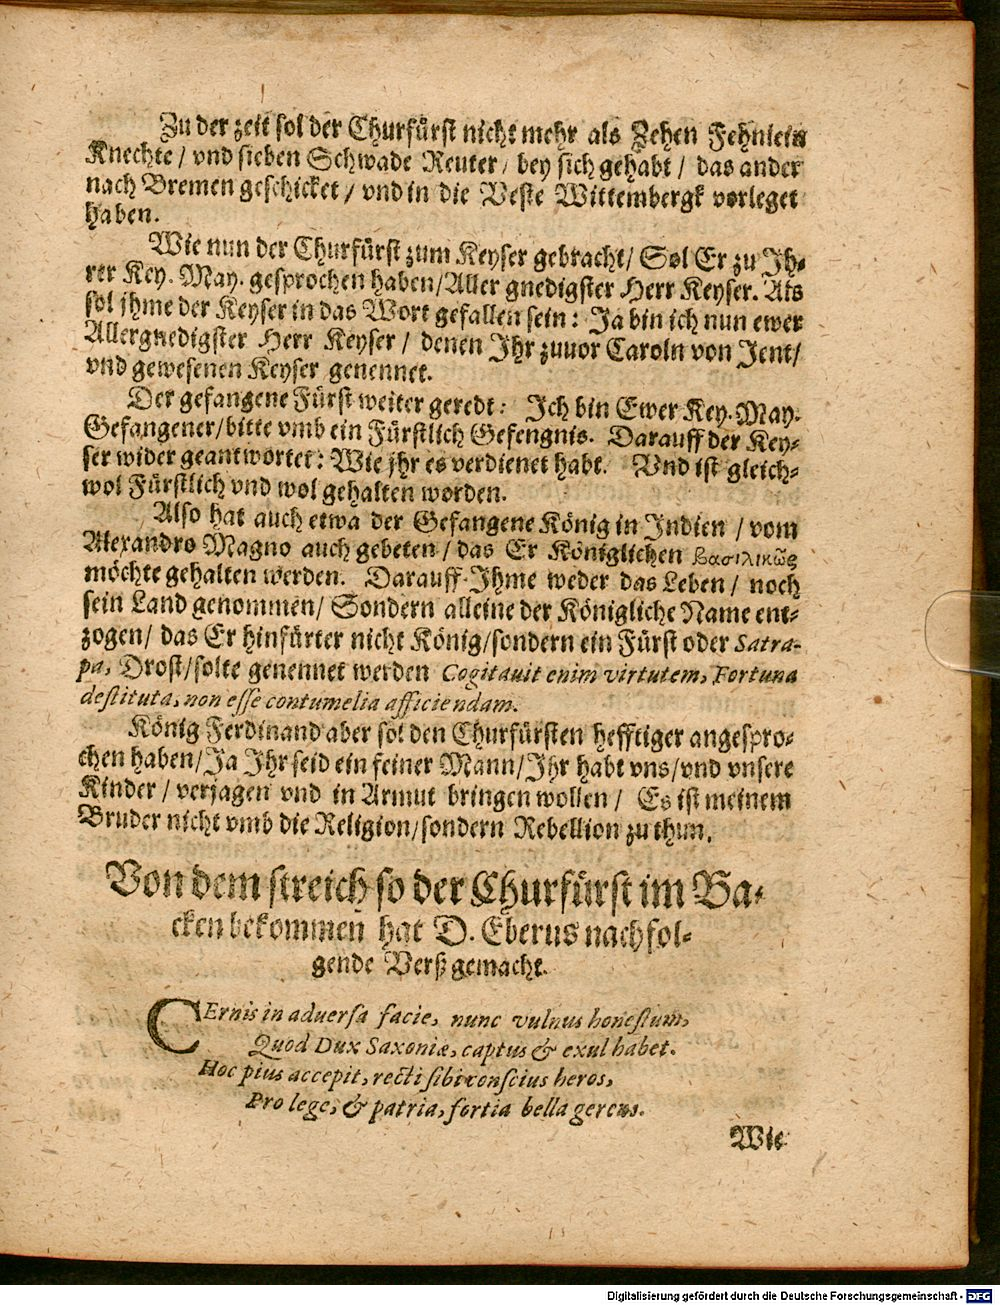 Zu der zeit sol der Churfürst nicht mehr als Zehen Fehnlein
Knechte / vnd sieben Schwade Reuter / bey sich gehabt / das ander
nach Bremen geschicket / vnd in die Veste Wittembergk vorleget
haben.
Wie nun der Churfürst zum Keyser gebracht / Sol Er zu Ih-
rer Key. May. gesprochen haben / Aller gnedigster Herr Keyser. Als
sol jhme der Keyser in das Wort gefallen sein: Ja bin ich nun ewer
Allergnedigster Herr Keyser / denen Ihr zuuor Caroln von Jent /
vnd gewesenen Keyser genennet.
Der gefangene Fürst weiter geredt: Ich bin Ewer Key. May.
Gefangener / bitte vmb ein Fürstlich Gefengnis. Darauff der Key-
ser wider geantwortet: Wie jhr es verdienet habt. Vnd ist gleich-
wol Fürstlich vnd wol gehalten worden.
Also hat auch etwa der Gefangene König in Indien / vom
Alexandro Magno auch gebeten / das Er Königlichen βασιλικῶς
möchte gehalten werden. Darauff Ihme weder das Leben / noch
sein Land genommen / Sondern alleine der Königliche Name ent-
zogen / das Er hinfürter nicht König / sondern ein Fürst oder Satra-
pa, Drost / solte genennet werden Cogitauit enim virtutem, Fortuna
destituta, non esse contumelia afficiendam.
König Ferdinand aber sol den Churfürsten hefftiger angespro-
chen haben / Ja Ihr seid ein feiner Mann / Ihr habt vns / vnd vnsere
Kinder / verjagen vnd in Armut bringen wollen / Es ist meinem
Bruder nicht vmb die Religion / sondern Rebellion zu thun.
Von dem streich so der Churfürst im Ba-
cken bekommen hat D. Eberus nachfol-
gende Verß gemacht.
CErnis in aduersa facie, nunc vulnus honestum,
Quod Dux Saxoniæ, captus & exul habet.
Hoc pius accepit, recti sibi conscius heros,
Pro lege, & patria, fortia bella gerens.
Wie
Digitalisierung gefördert durch die Deutsche Forschungsgemeinschaft - DFG